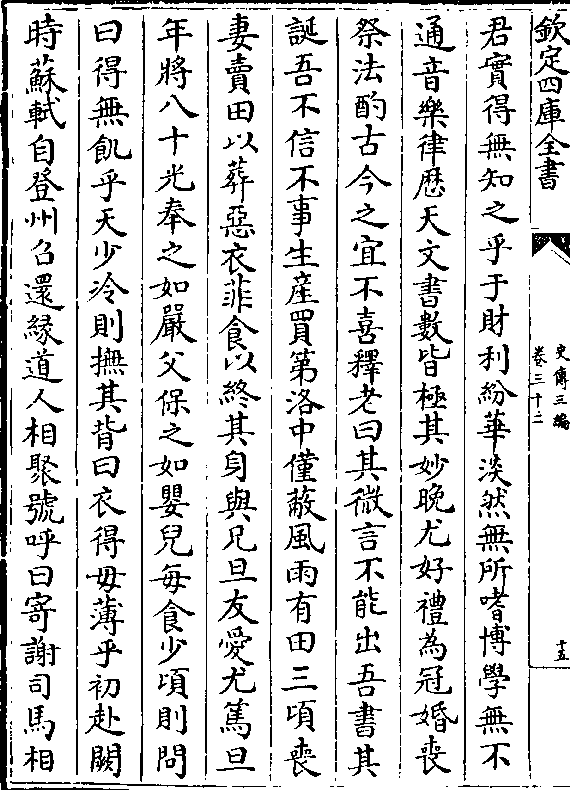 欽定四庫全書
史傳三編
卷三十二
十五
君實得無知之乎于財利紛華淡然無所嗜博學無不
通音樂律歴天文書數皆極其妙晚尤好禮為冠婚喪
祭法酌古今之宜不喜釋老曰其微言不能出吾書其
誕吾不信不事生産買第洛中僅蔽風雨有田三頃喪
妻賣田以葬惡衣菲食以終其身與兄旦友愛尤篤旦
年將八十光奉之如嚴父保之如嬰兒每食少頃則問
曰得無飢乎天少冷則撫其背曰衣得毋薄乎初赴闕
時蘇軾自登州召還緣道人相聚號呼曰寄謝司馬相